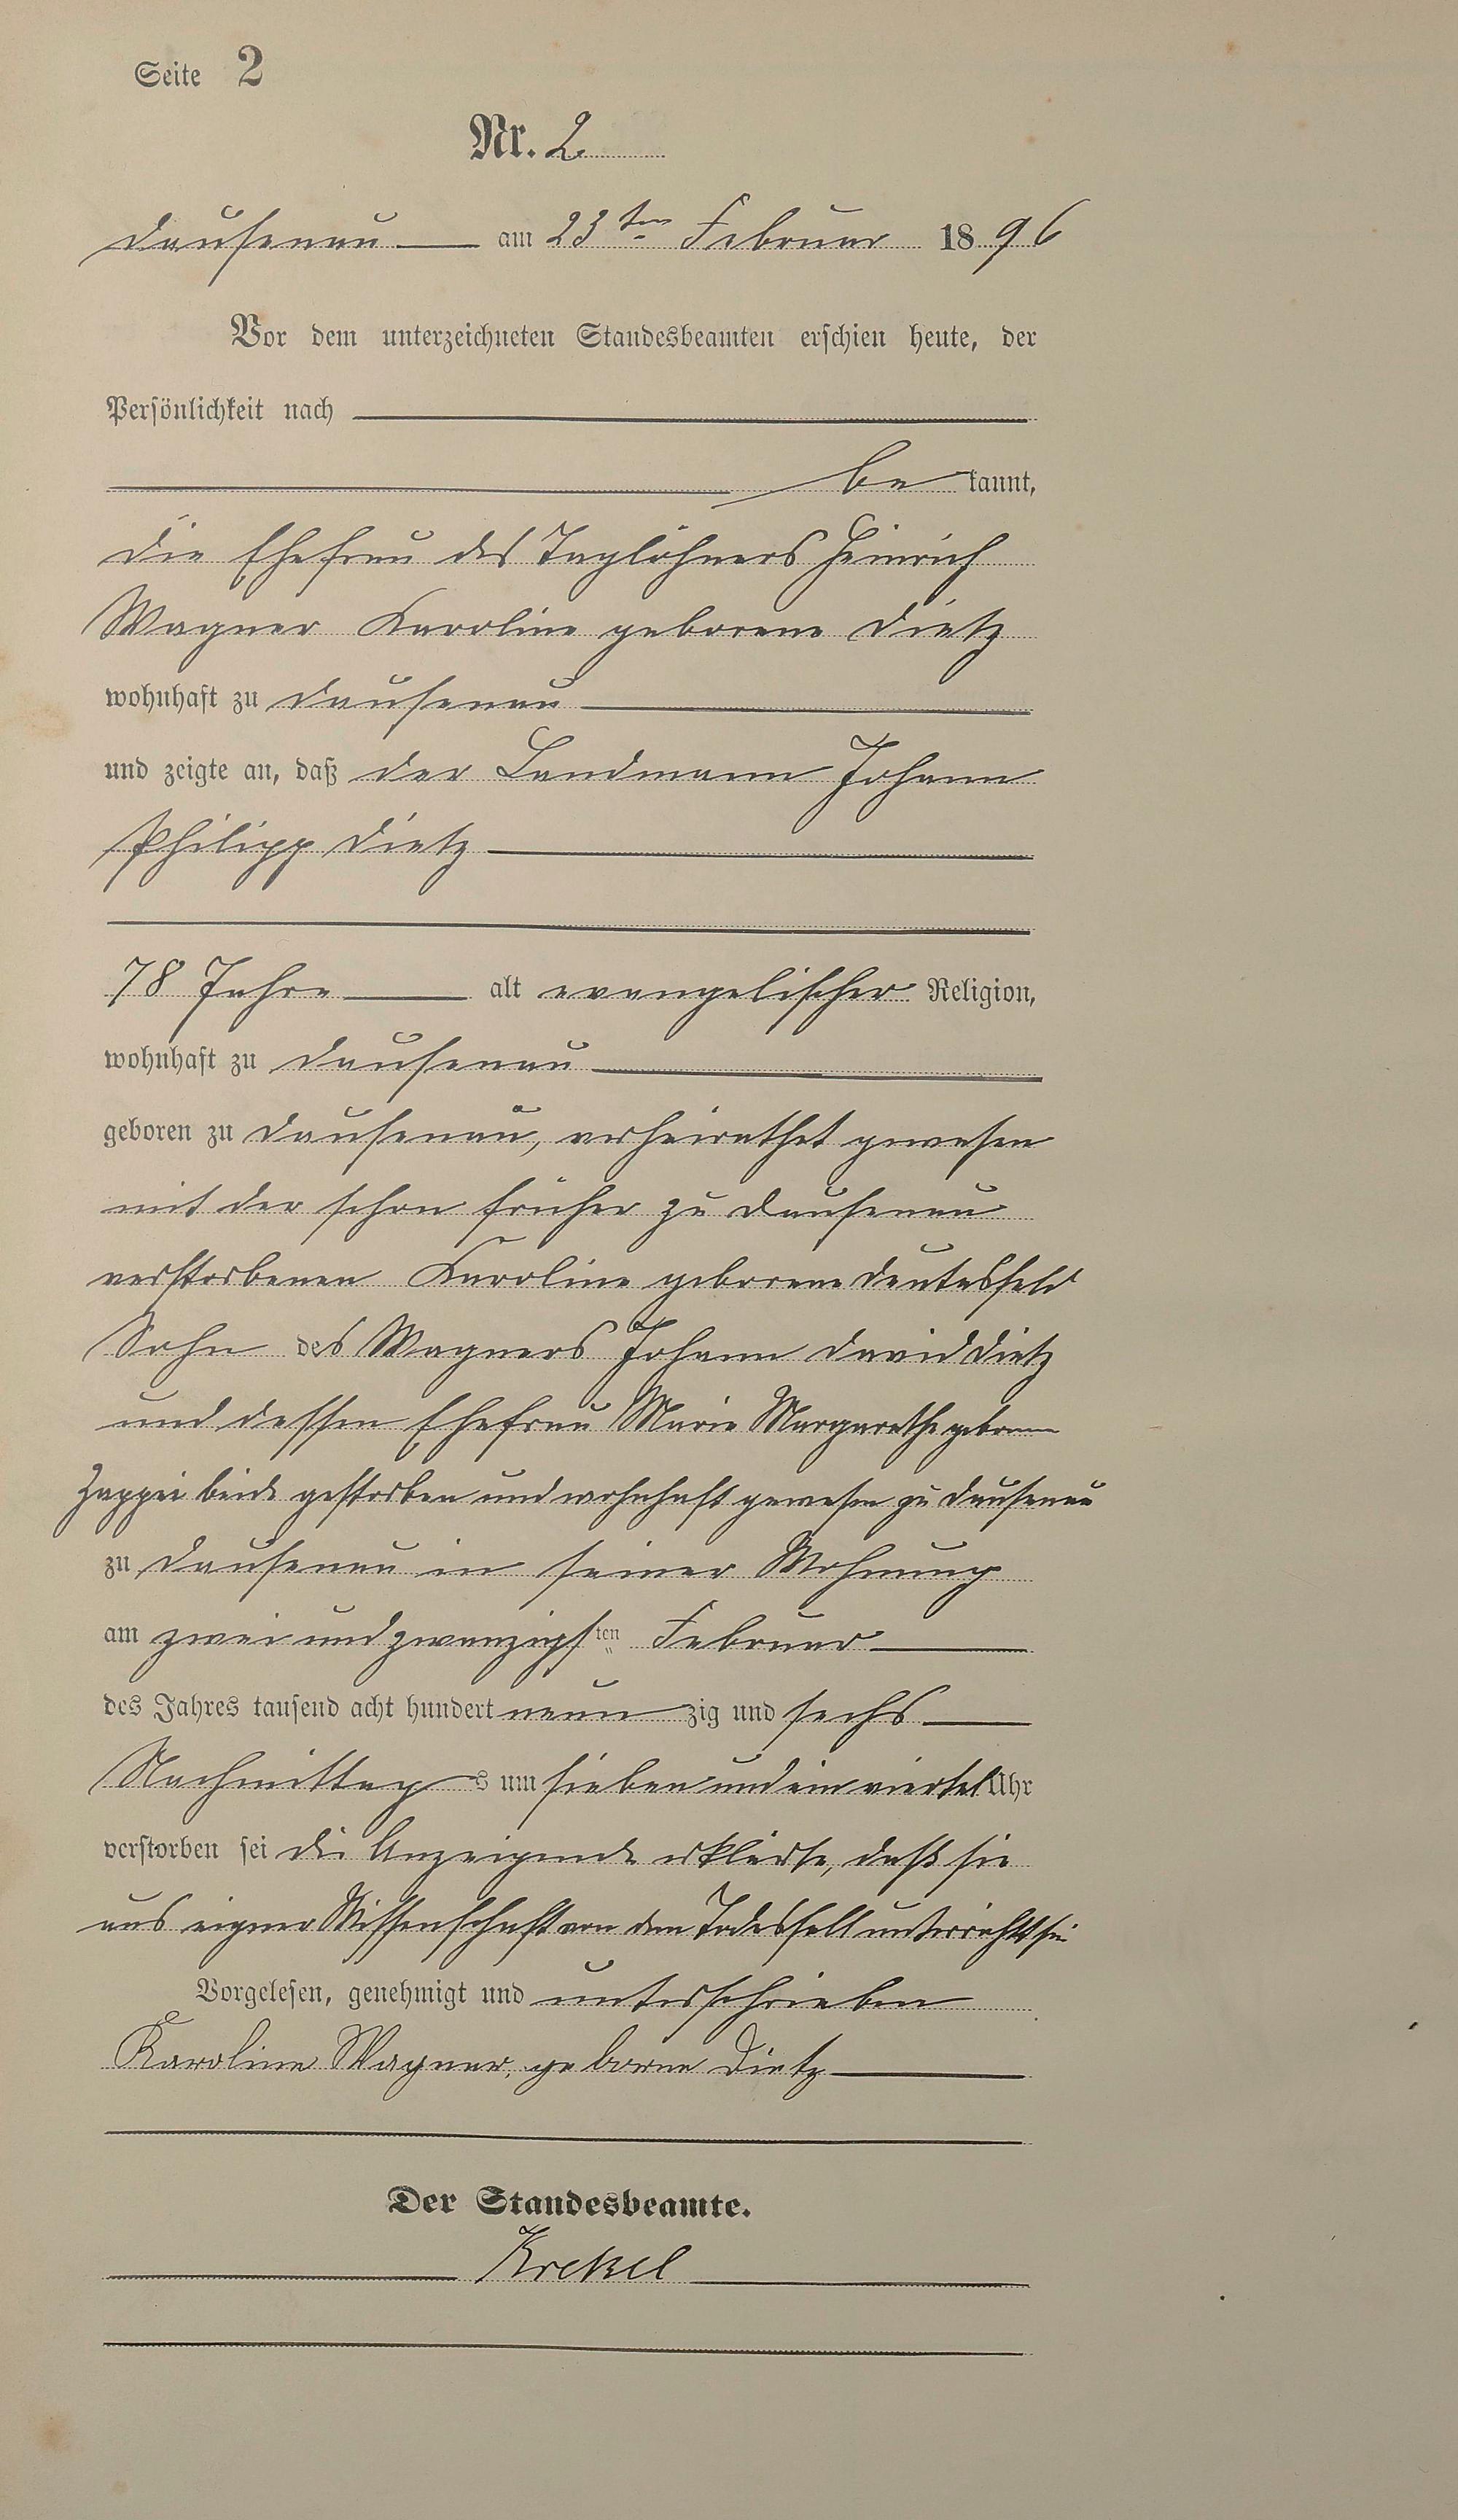 Seite 2
Nr. 2
Dausenau am 23ten Februar 1896
Vor dem unterzeichneten Standesbeamten erschien heute, der
Persönlichkeit nach
be kannt,
die Ehefrau des Taglöhners Heinrich
Wagner Karoline geborene Dietz
wohnhaft zu Dausenau
und zeigte an, daß der Landmann Johann
Philipp Dietz
78 Jahre alt evangelischer Religion,
wohnhaft zu Dausenau
geboren zu Dausenau, verheirathet gewesen
mit der schon früher zu Dausenau
verstorbenen Karoline geborene Deutesfeld
Sohn des Wagners Johann David Dietz
und dessen Ehefrau Marie Margarethe geborene
Zappei beide gestorben und wohnhaft gewesen zu Dausenau
zu Dausenau in seiner Wohnung
am zwei und zwanzigsten Februar
des Jahres tausend acht hundert neun zig und sechs
Nachmittags um sieben und ein viertel Uhr
verstorben sei die Anzeigende erklärte, daß sie
aus eigner Wissenschaft von dem Todesfall unterrichtet sei
Vorgelesen, genehmigt und unterschrieben
Karoline Wagner, geborne Dietz
Der Standesbeamte.
Krekel